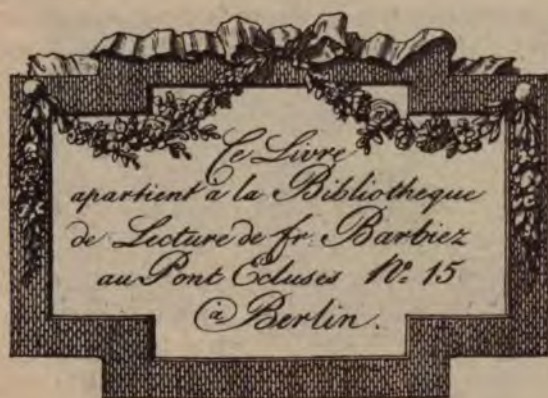 Ce Livre
apartient à la Bibliotheque
de Lecture de fr: Barbiez
au Pont Ecluses No. 15
à Berlin.